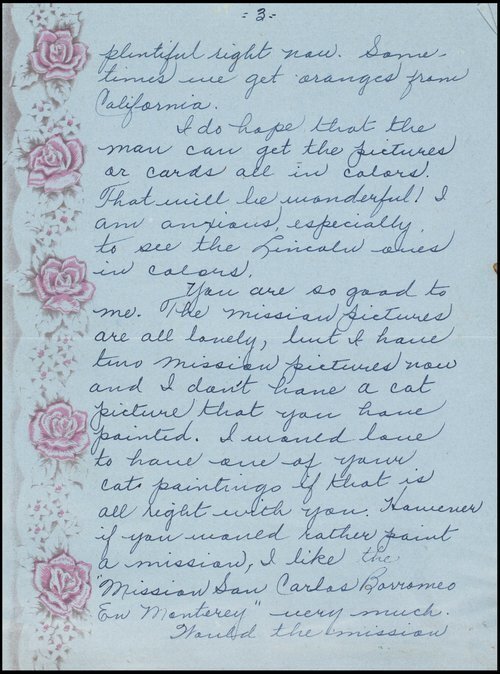 - 3 -
plentiful right now. Some-
times we get oranges from
California.
I do hope that the
man can get the pictures
or cards all in colors.
That will be wonderful! I
am anxious, especially,
to see the Lincoln ones
in colors.
You are so good to
me. The mission pictures
are all lovely, but I have
two mission pictures now
and I don't have a cat
picture that you have
painted. I would love
to have one of your
cat paintings if that is
all right with you. However
if you would rather paint
a mission, I like the
"Mission San Carlos Borromeo
En Monterey" very much.
Would the mission